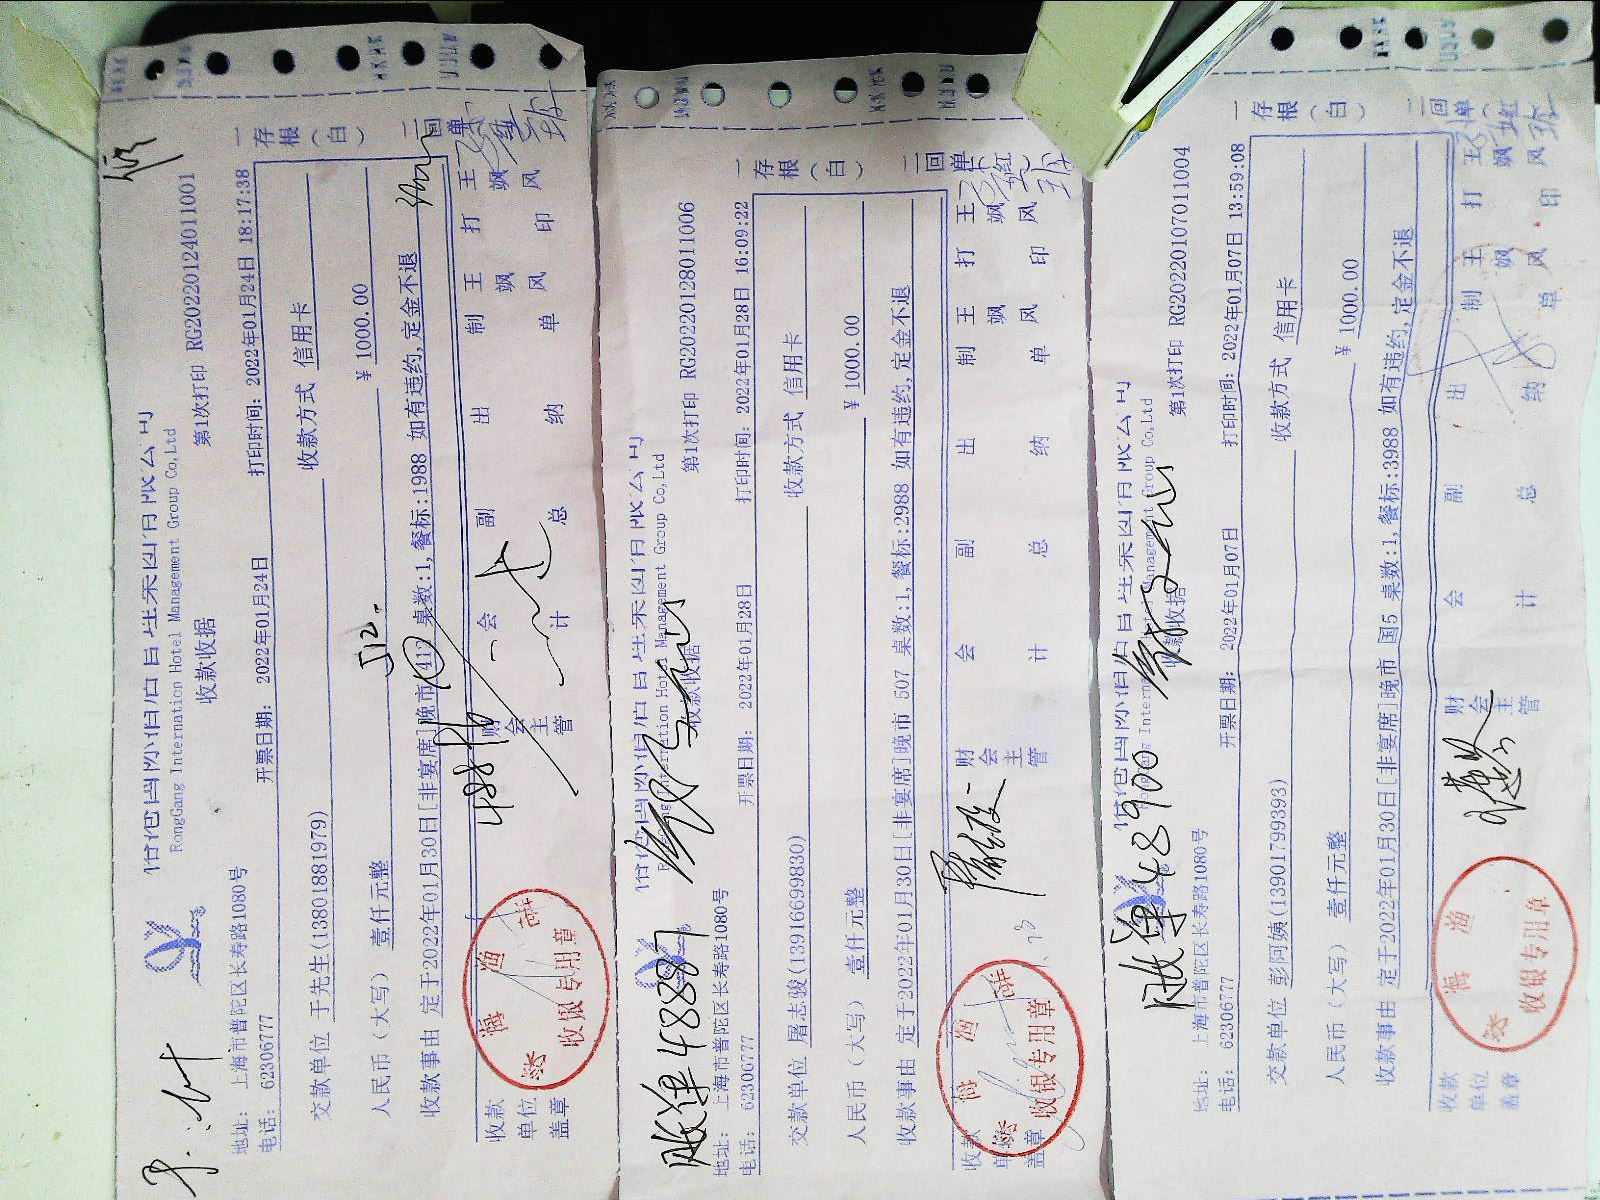 RongGang Internation Hotel Management Group Co,Ltd
收款收据
第1次打印 RG20220124011001
地址： 上海市普陀区长寿路1080号
电话： 62306777
开票日期： 2022年01月24日
打印时间：2022年01月24日 18:17:38
交款单位 于先生(13801881979)
收款方式 信用卡
人民币（大写） 壹仟元整
¥ 1000.00
512.
收款事由 定于2022年01月30日[非宴席]晚市 412 桌数:1,餐标:1988 如有违约,定金不退
收款单位盖章
财会主管
会计
副总
出纳
制单 王飒风
打印 王飒风
一存根（白）
二回单
收银专用章
RongGang Internation Hotel Management Group Co,Ltd
收款收据
第1次打印 RG20220128011006
48887
地址： 上海市普陀区长寿路1080号
电话： 62306777
开票日期： 2022年01月28日
打印时间：2022年01月28日 16:09:22
交款单位 屠志骏(13916699830)
收款方式 信用卡
人民币（大写） 壹仟元整
¥ 1000.00
收款事由 定于2022年01月30日[非宴席]晚市 507 桌数:1,餐标:2988 如有违约,定金不退
收款单位盖章
财会主管
会计
副总
出纳
制单 王飒风
打印 王飒风
一存根（白）
二回单
收银专用章
RongGang Internation Hotel Management Group Co,Ltd
收款收据
第1次打印 RG20220107011004
48900
地址： 上海市普陀区长寿路1080号
电话： 62306777
开票日期： 2022年01月07日
打印时间：2022年01月07日 13:59:08
交款单位 彭阿姨(13901799393)
收款方式 信用卡
人民币（大写） 壹仟元整
¥ 1000.00
收款事由 定于2022年01月30日[非宴席]晚市 国5 桌数:1,餐标:3988 如有违约,定金不退
收款单位盖章
财会主管
会计
副总
出纳
制单 王飒风
打印 王飒风
一存根（白）
二回单
收银专用章